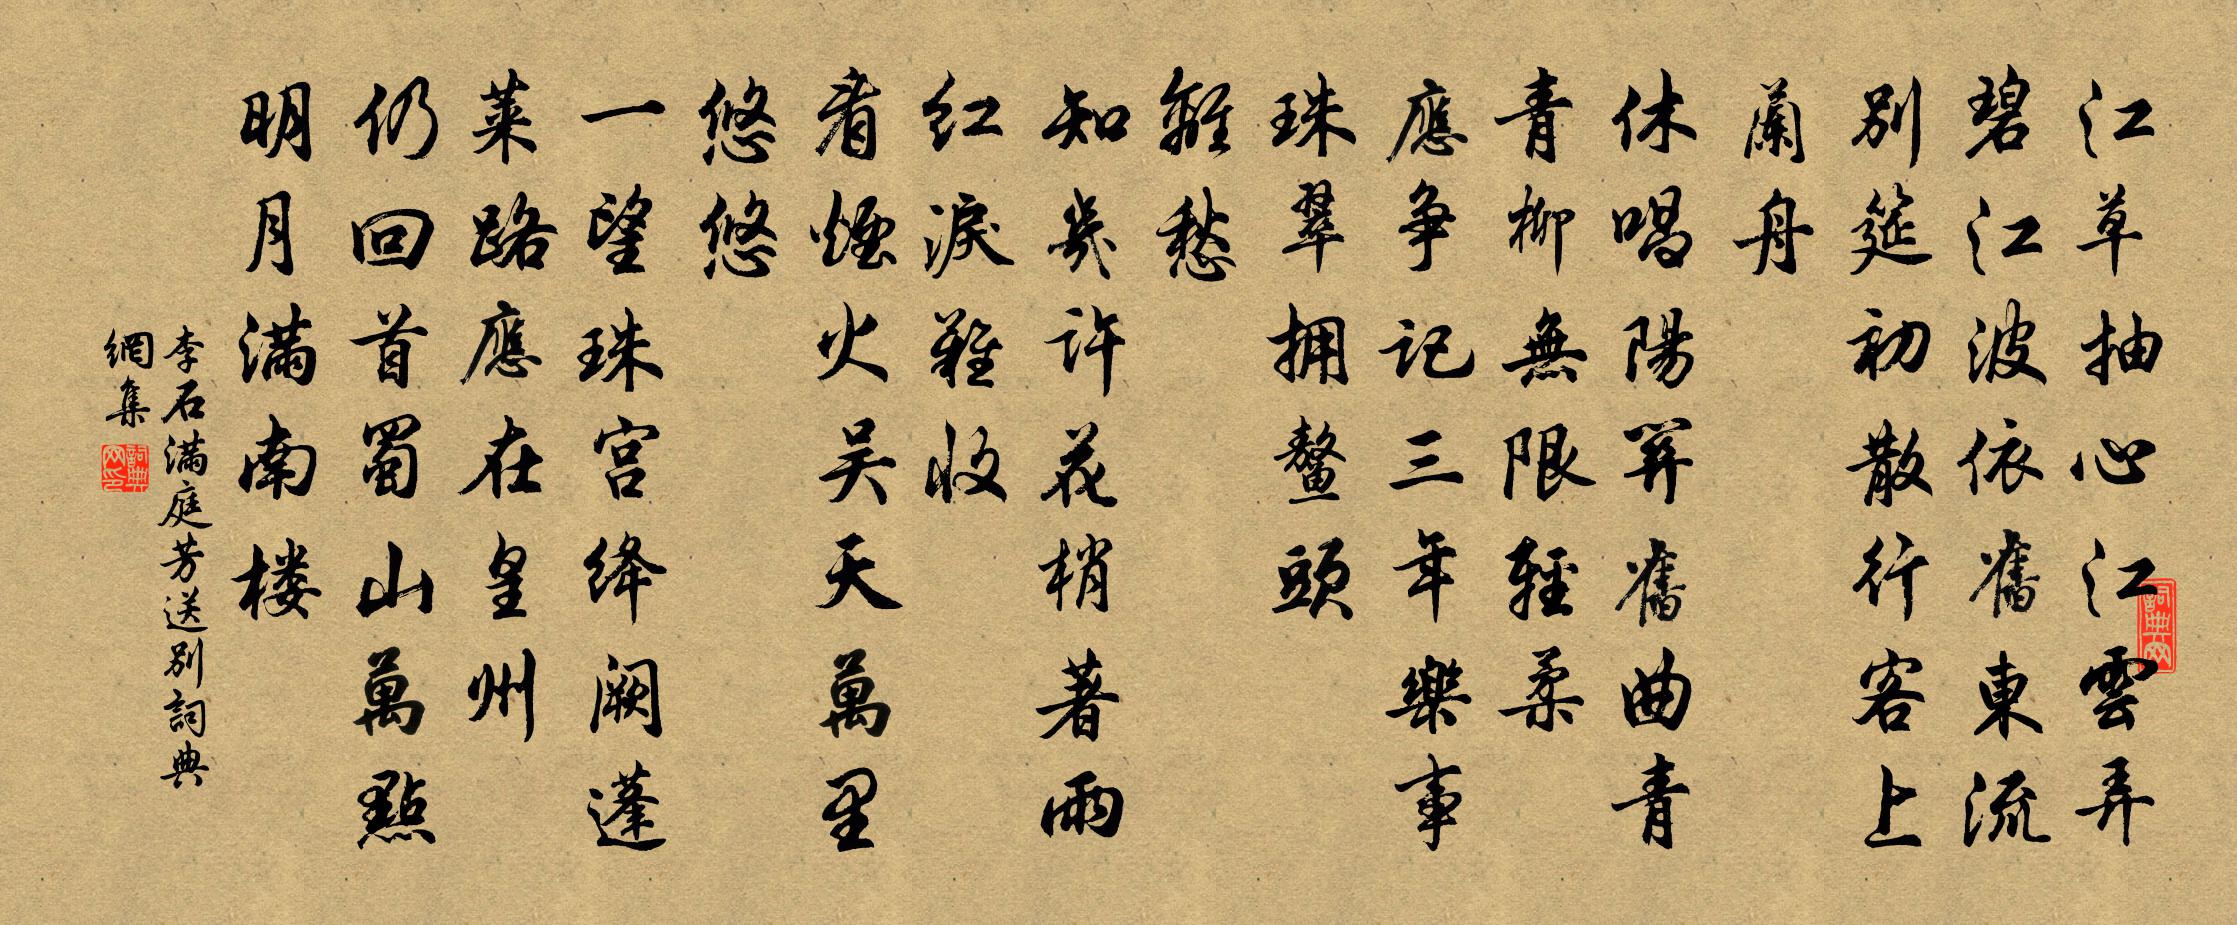 江草抽心江雲弄
碧江波依舊東流
別筵初散行客上
蘭舟
休唱陽關舊曲青
青柳無限輕柔
應爭記三年樂事
珠翠擁鼇頭
離愁
知幾許花梢著雨
紅淚難收
看煙火吳天萬里
悠悠
一望珠宮絳闕蓬
萊路應在皇州
仍回首蜀山萬點
明月滿南樓
李石滿庭芳送別詞典
網集
詞典網
詞典網印